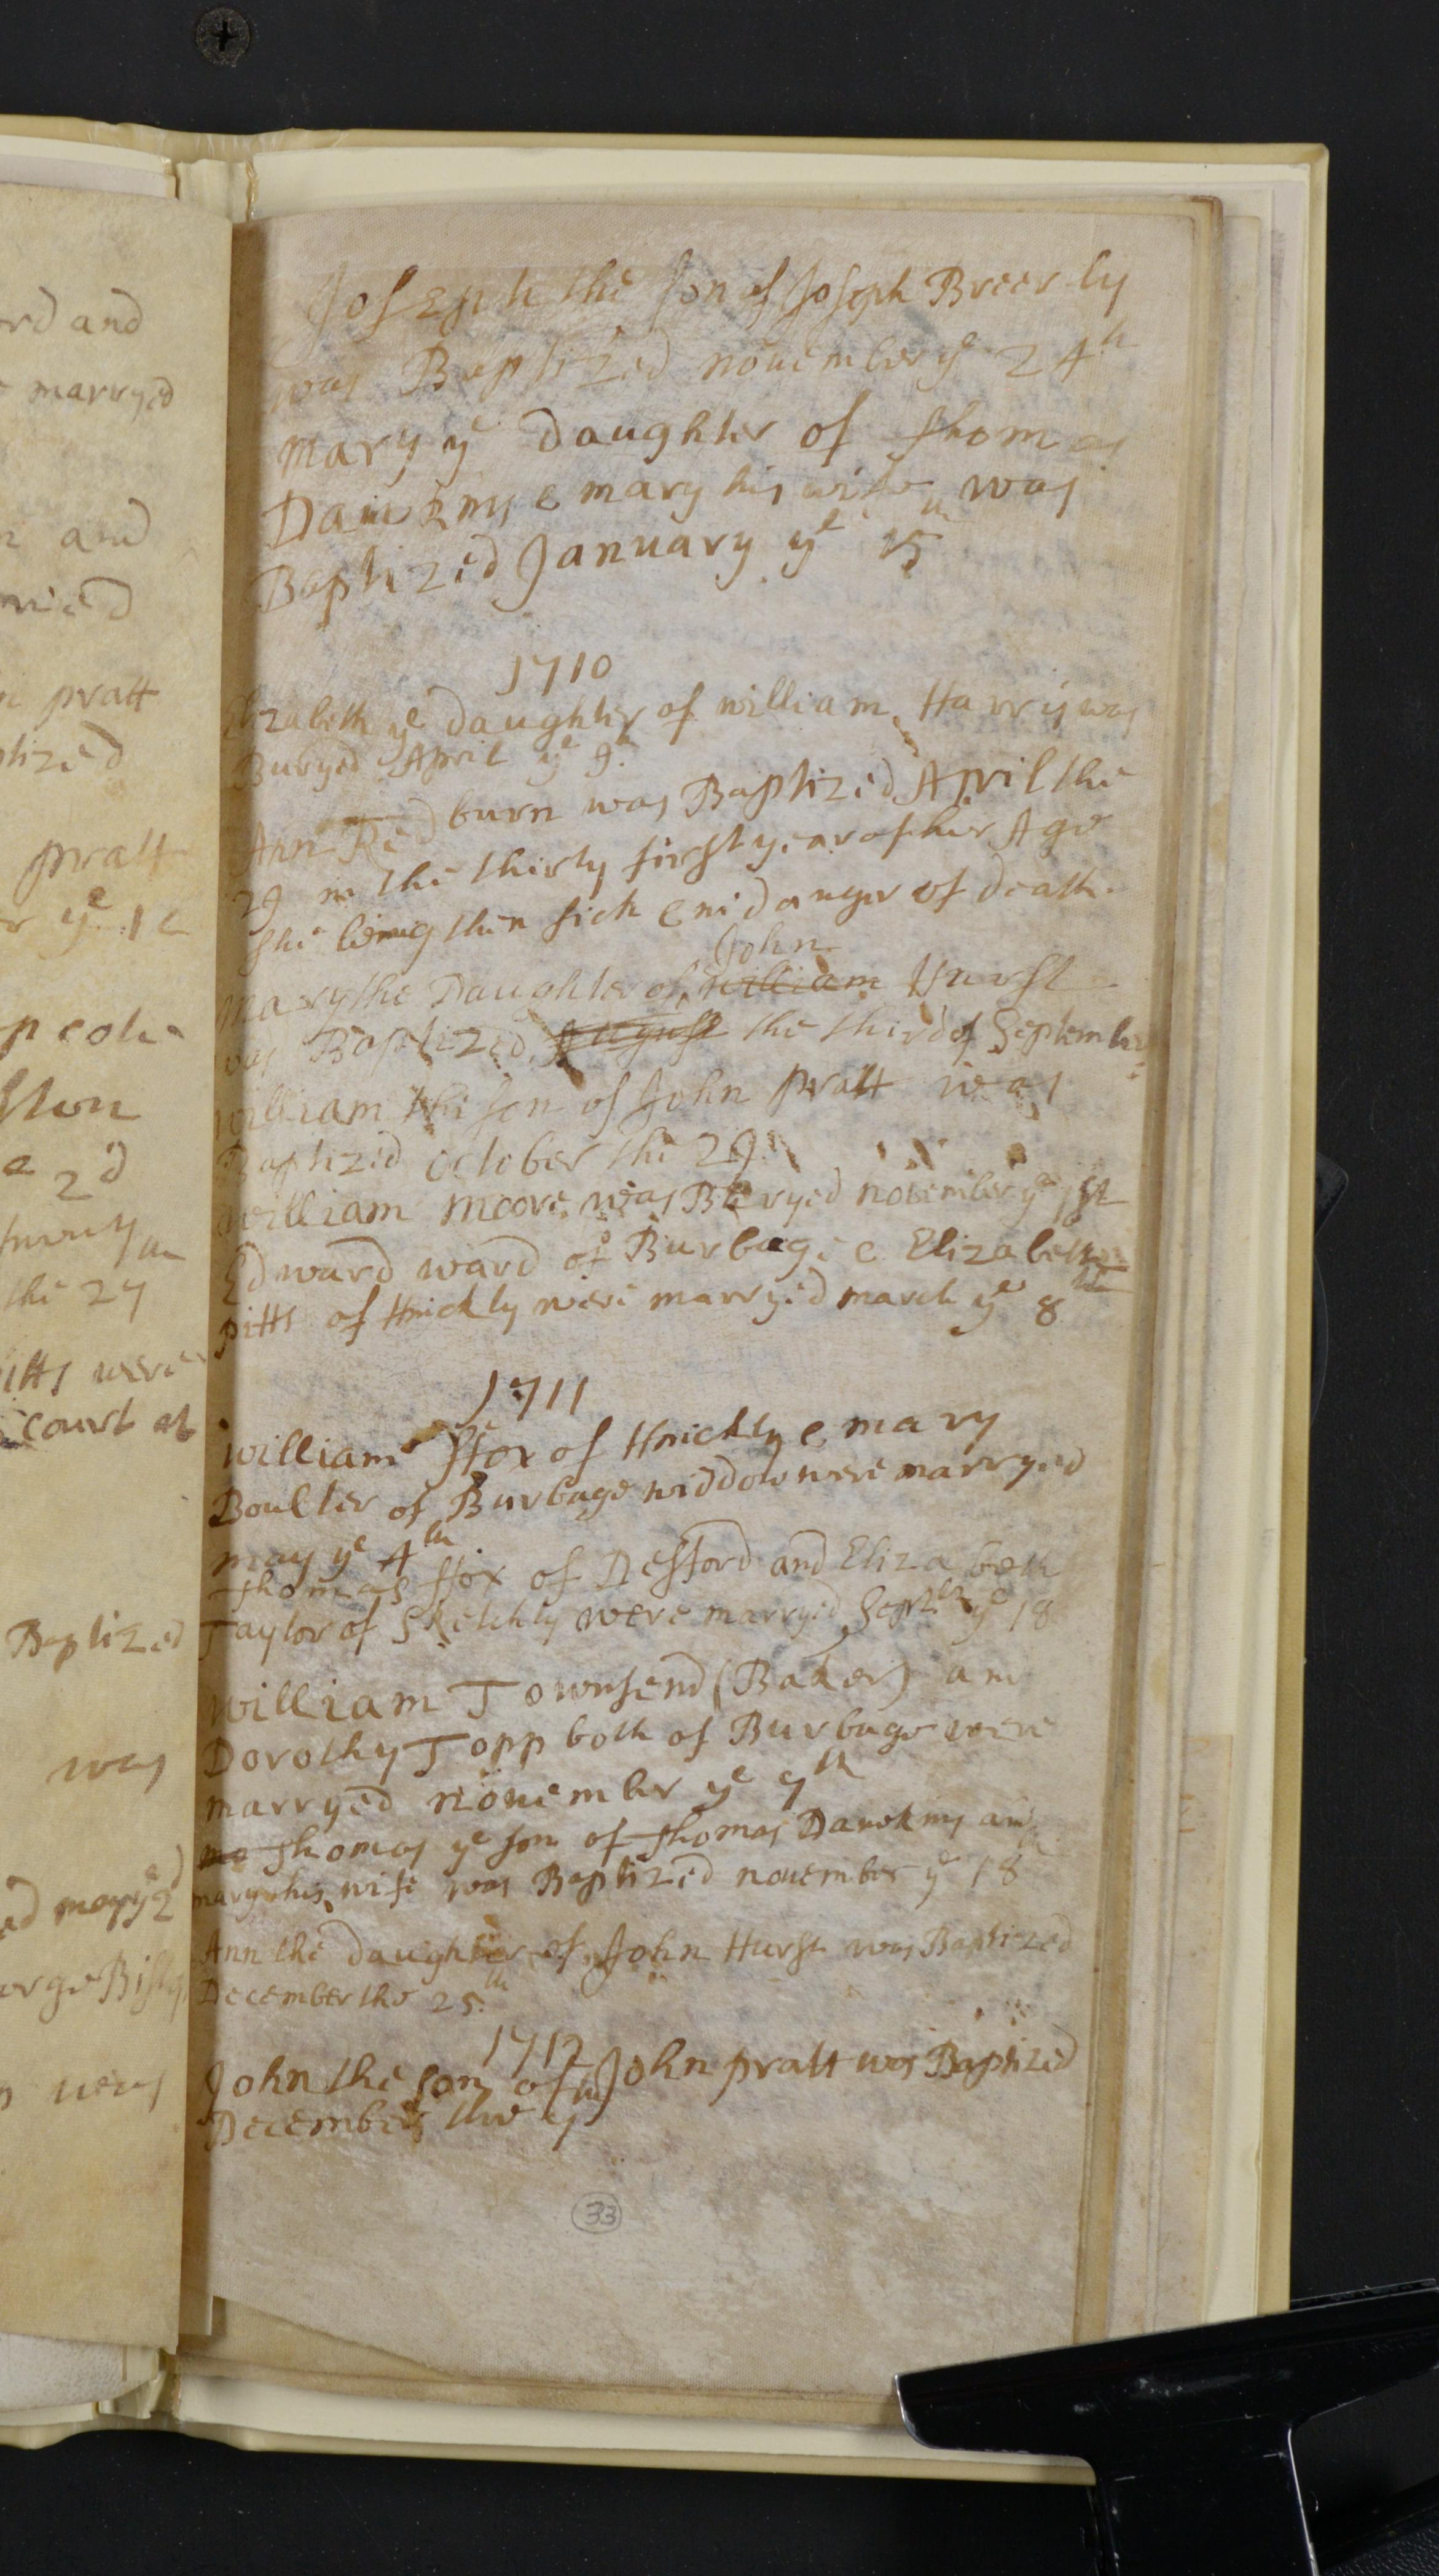 rd and
marryed
and
pratt
ptized
pratt
r ye 1
2d
the 27
itts were
court at
Baptized
was
ed may ye 2d
Joseph the son of Joseph Breerly
was Baptized nouember ye 24th
mary ye Daughter of Thomas
Dawkins & mary his wife was
Baptized January ye 15th
1710
Elizabeth ye daughter of william Harris was
Buryed April ye 9th
Ann Redburn was Baptized April the
29 in the thirty first year of her Age
she being then sick & in danger of death.
John
mary the Daughter of william Hurst
was Baptized August the third of September
william the son of John pratt was
Baptized october the 29
william moore was Buryed november ye 1st
Edward ward of Burbage & Elizabeth
pitts of Hinckly were marryed march ye 8th
1711
william ffox of Hinckly & mary
Boulter of Burbage widdow were marryed
may ye 4th
Thomas ffox of Desford and Elizabeth
Taylor of Sketchly were marryed Septbr ye 18
william Townsend (Baker) and
Dorothy Topp both of Burbage were
marryed nouember ye 7th
Thomas ye son of Thomas Dawkins and
mary his wife was Baptized nouember ye 18th
Ann the daughter of John Hurst was Baptized
December the 25th
1712
John the son of John pratt was Baptized
December the 7th
33